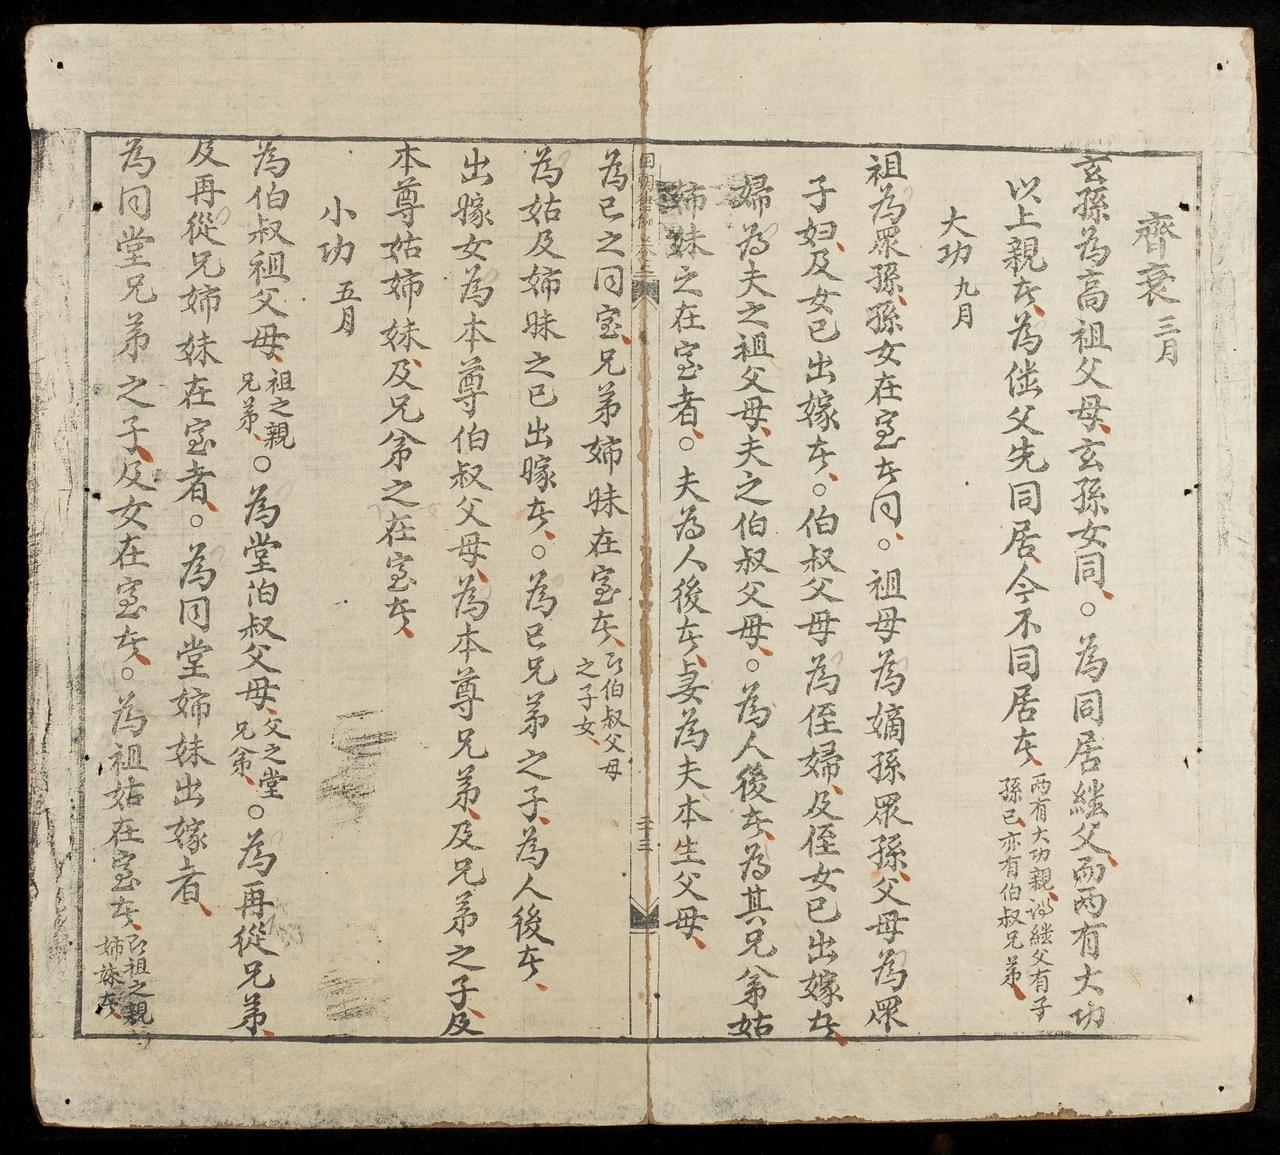 齊衰三月
玄孫為高祖父母玄孫女同○為同居継父而两有大功
以上親者為継父先同居今不同居者两有大功親謂継父有子孫己亦有伯叔兄弟
大功九月
祖為眾孫孫女在室者同○祖母為嫡孫眾孫父母為眾
子妇及女已出嫁者○伯叔父母為侄婦及侄女已出嫁者
婦為夫之祖父母夫之伯叔父母○為人後者為其兄弟姑
姉妹之在室者○夫為人後者妻為夫本生父母
二十三
為己之同堂兄弟姉妹在室者即伯叔父母之子女
為姑及姉妹之已出嫁者○為己兄弟之子為人後者
出嫁女為本尊伯叔父母為本尊兄弟及兄弟之子及
本尊姑姉妹及兄弟之在室者
小功五月
為伯叔祖父母祖之親兄弟○為堂伯叔父母父之堂兄弟○為再從兄弟
及再從兄姉妹在室者○為同堂姉妹出嫁者
為同堂兄弟之子及女在室者○為祖姑在室者即祖之親姉妹者